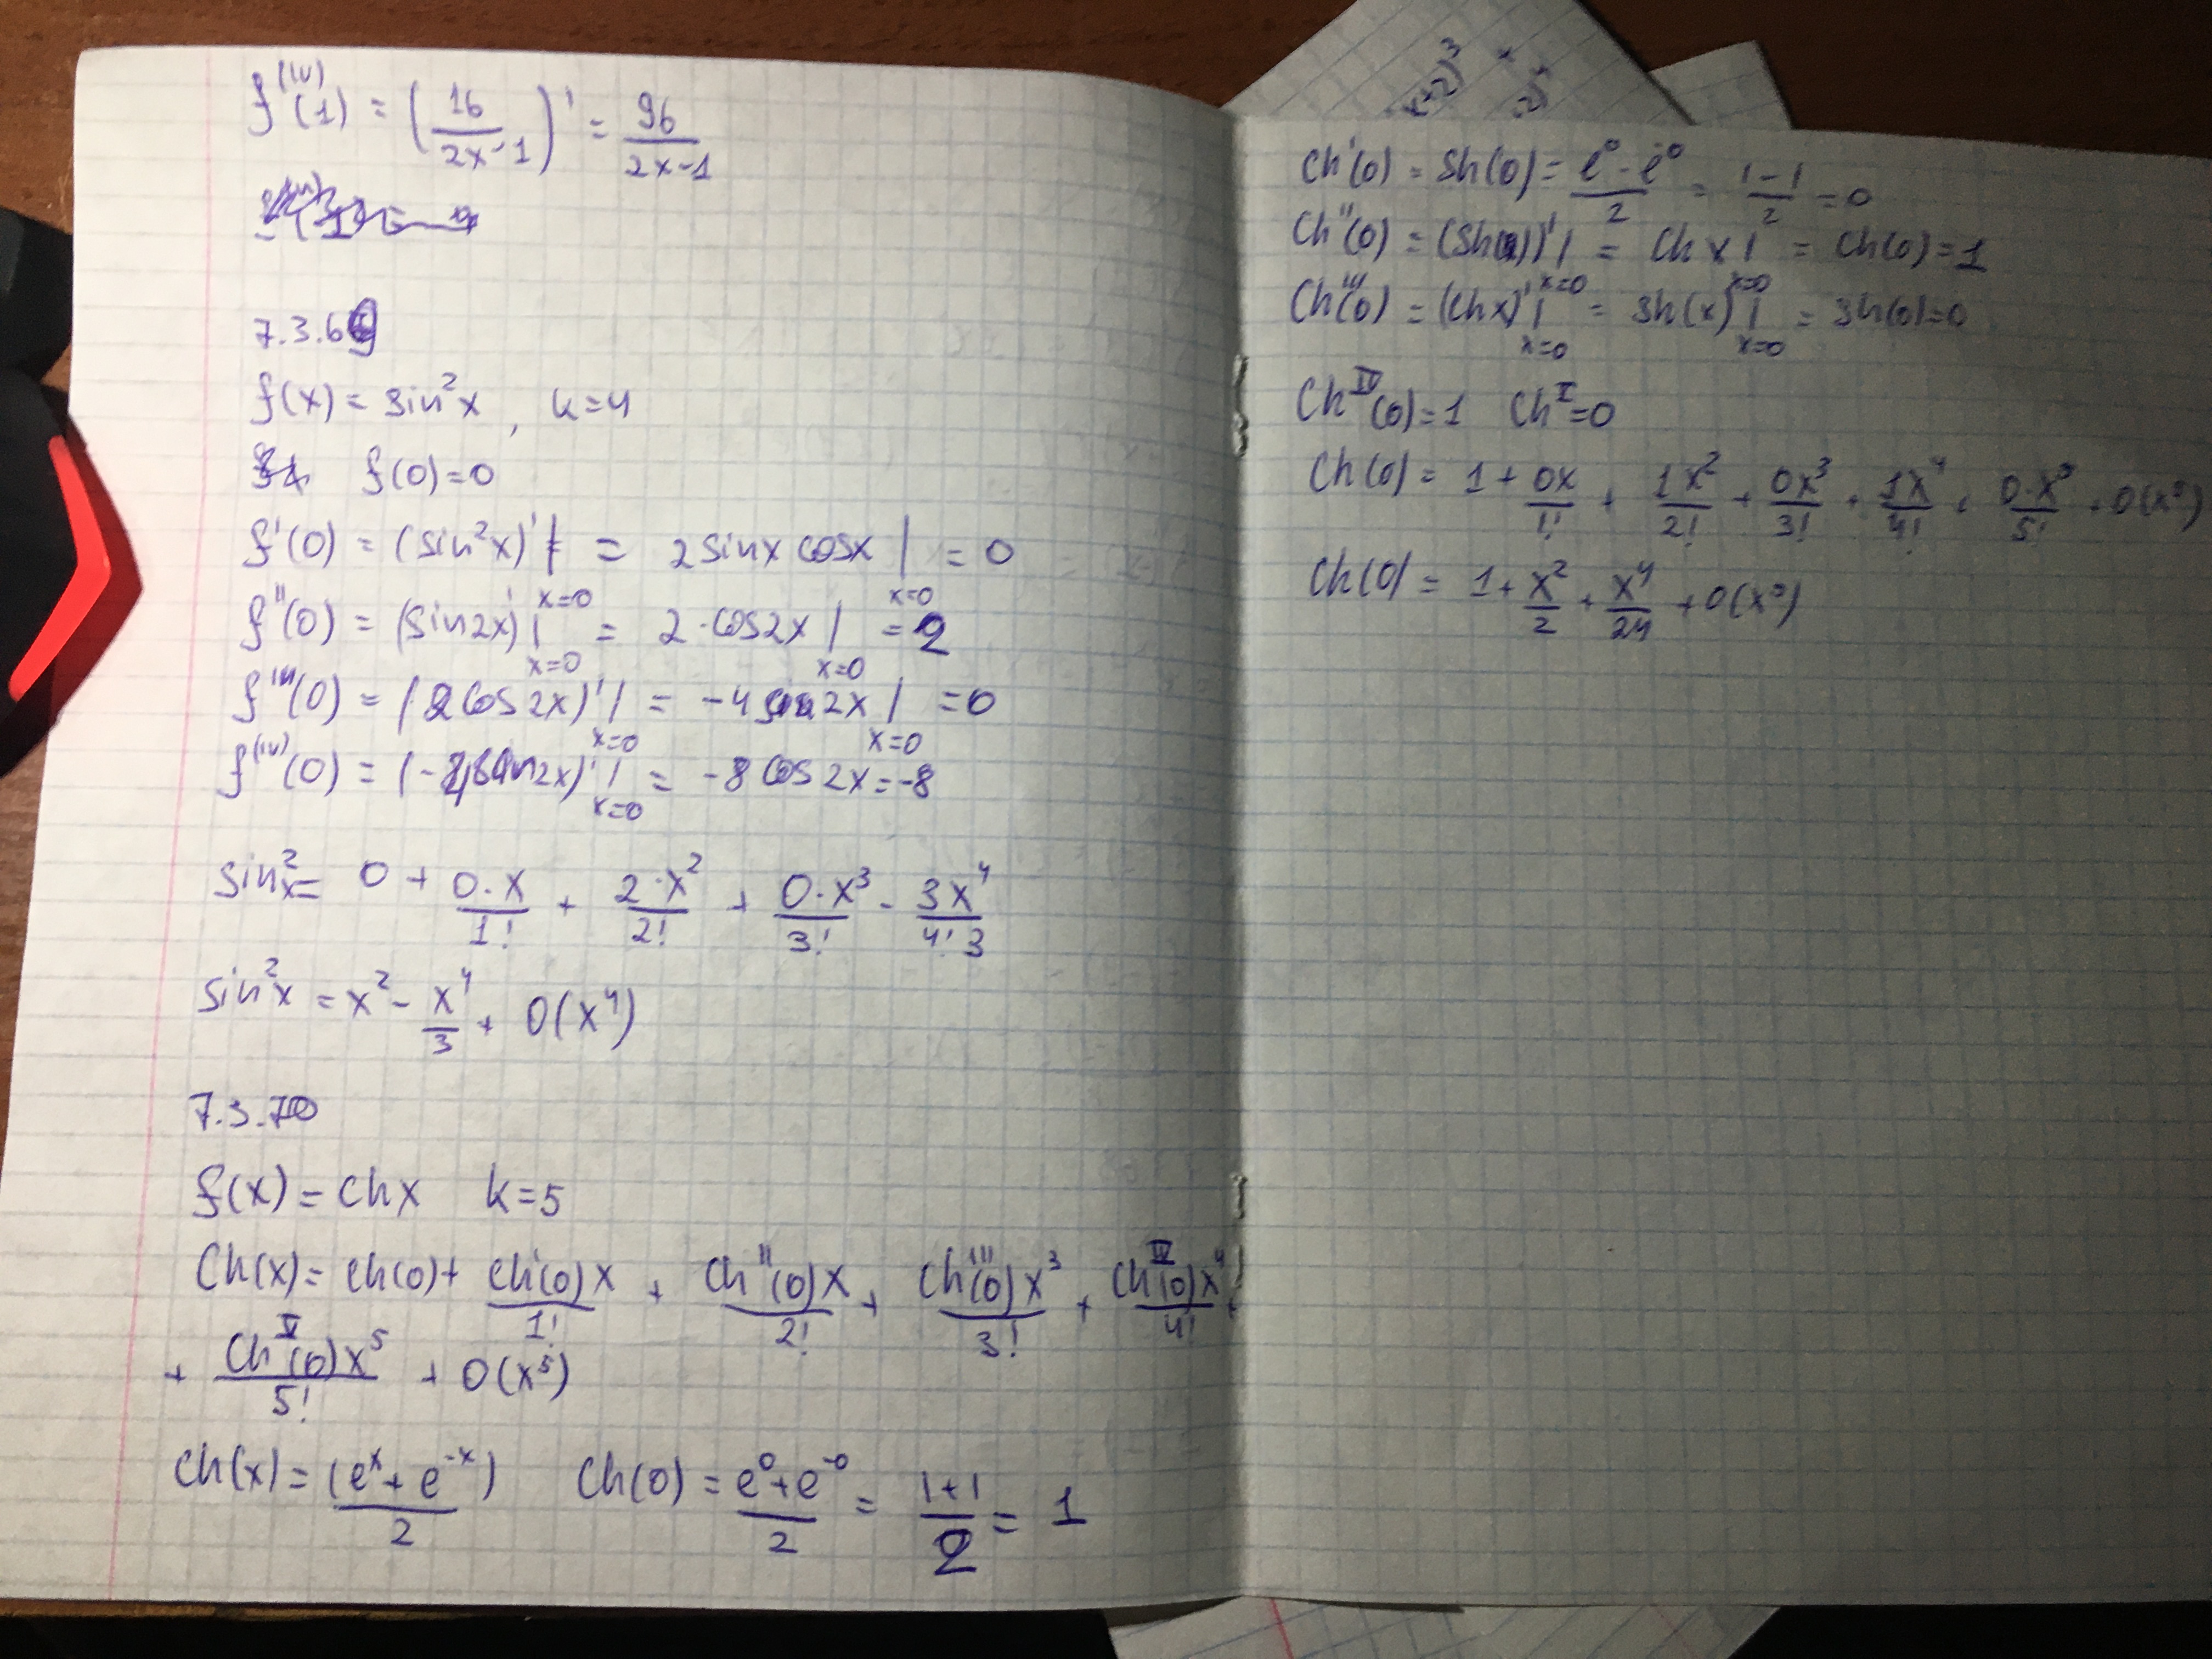 f^(IV)(1) = (16/(2x-1))' = 96/(2x-1)
7.3.69
f(x) = sin²x, k=4
f(0)=0
f'(0) = (sin²x)'| x=0 = 2sinx cosx | x=0 = 0
f''(0) = (sin2x)'| x=0 = 2·cos2x | x=0 = 2
f'''(0) = (2cos2x)'| x=0 = -4 sin2x | x=0 = 0
f^(IV)(0) = (- sin2x)'| x=0 = -8 cos2x = -8
sin²x = 0 + 0·x/1! + 2·x²/2! + 0·x³/3! - 3x⁴/4! 3
sin²x = x² - x⁴/3 + O(x⁴)
7.3.70
f(x) = chx k=5
Ch(x) = ch(0) + ch'(0)x/1! + ch''(0)x/2! + ch'''(0)x³/3! + ch^IV(0)x⁴/4! +
+ Ch^V(0)x⁵/5! + O(x⁵)
Ch(x) = (e^x + e^-x)/2 Ch(0) = (e^0 + e^-0)/2 = (1+1)/2 = 1
Ch'(0) = Sh(0) = (e^0 - e^-0)/2 = (1-1)/2 = 0
Ch''(0) = (Sh(x))'| x=0 = Ch x| x=0 = Ch(0) = 1
Ch'''(0) = (chx)'| x=0 = Sh(x)| x=0 = Sh(0)=0
Ch^IV(0)=1 Ch^V=0
Ch(0) = 1 + 0x/1! + 1x²/2! + 0x³/3! + 1x⁴/4! + 0·x⁵/5! + O(x⁵)
Ch(0) = 1 + x²/2 + x⁴/24 + O(x⁵)